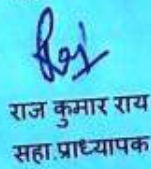 राज कुमार राय
सहा.प्राध्यापक